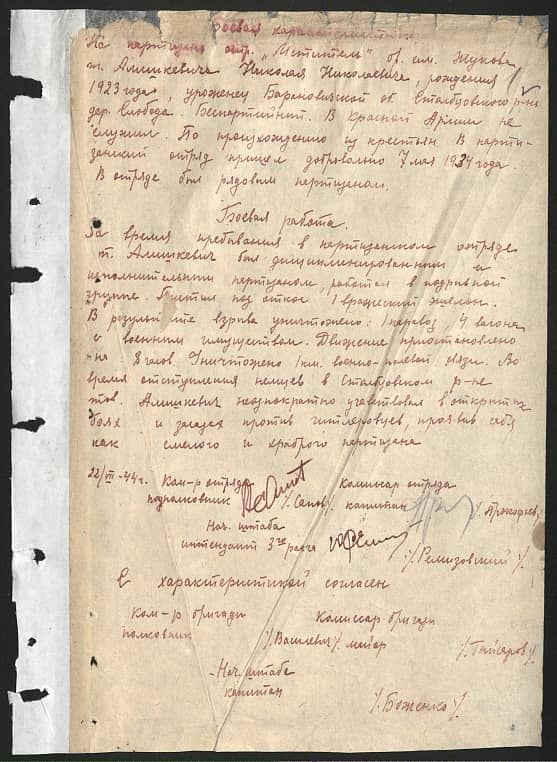 Боевая характеристика
На партизана отр. „Мститель" бр. им. Жукова
т. Алишкевича Николая Николаевича, рождения
1923 года, уроженец Барановичской об. Столбцовского р-на
дер. Слобода. Беспартийный. В Красной Армии не
служил. По происхождению из крестьян. В парти-
занский отряд пришел добровольно 7 мая 1934 года.
В отряде был рядовым партизаном.
Боевая работа.
За время пребывания в партизанском отряде
т. Алишкевич был дисциплинированным и
исполнительным партизаном, работал в подрывной
группе. Пустил под откос 1 вражеский эшелон.
В результате взрыва уничтожено: 1 паровоз, 4 вагона
с военным имуществом. Движение приостановлено
на 8 часов. Уничтожено 1 км. военно-полевой связи. Во
время отступления немцев в Столбцовском р-не
тов. Алишкевич неоднократно участвовал в открытых
боях и засадах против гитлеровцев, проявив себя
как смелого и храброго партизана
22/VII-44г. Ком-р отряда комиссар отряда
подполковник /. капитан /. Прокофьев/
Нач. штаба
интендант 3го ранга
/. Ремизовский /.
С характеристикой согласен
Ком-р бригады Комиссар бригады
полковник /. Василевич /. майор
-Нач. штаба
капитан
/. Боженко /.